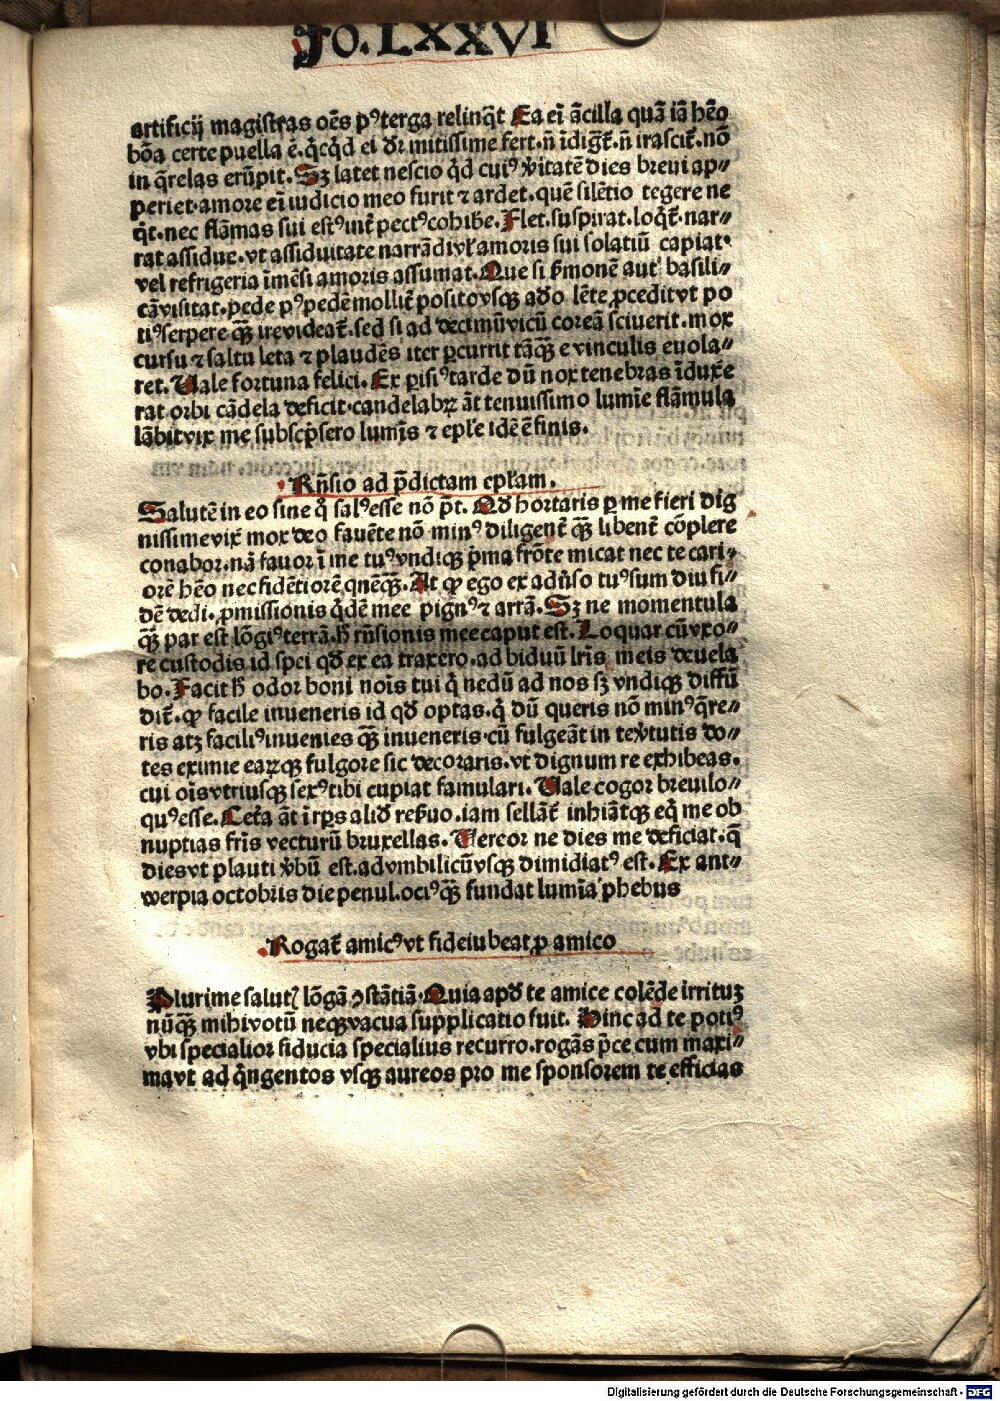 Fo. LXXVI
artificij magistras oēs pꝰterga relinq̄t Ea ei ācilla quā iā hēo
bōa certe puella ē. qͥcqͥd ei dr̄ mitissime fert. n̄ īdigt̄. n̄ irascit̄. nō
in qͣrelas erūpit. Sꝫ latet nescio qͥd cuiꝰ v̓itatē dies breui ap⸗
periet. amore eī iudicio meo furit ⁊ ardet. quē silētio tegere ne
qͥt. nec flāmas sui estꝰ int̄ pectꝰ cohibe. Flet. suspirat. loqt̄. nar⸗
rat assidue. vt assiduitate narrādi vl̓ amoris sui solatiū capiat.
vel refrigeria īmēsi amoris assumat. Que si s̓monē aut basili⸗
cā visitat. pede pꝰ pedē mollit̓ posito vsqꝫ adō lēte ꝓcedit vt po
tiꝰ serpere qꝫ̄ ire videat̄. sed si ad decimū vicū coreā sciuerit. mox
cursu ⁊ saltu leta ⁊ plaudēs iter ꝑcurrit tāqꝫ̄ e vinculis euola⸗
ret. Vale fortuna felici. Ex ꝑisiꝰ tarde dū nox tenebras īduxe
rat orbi cādela deficit. candelabꝝ āt tenuissimo lumīe flāmula
lābit vix me subscp̄sero lumīs ⁊ epl̓e idē ē finis.
Rn̄sio ad p̄dictam epl̓am.
Salutē in eo sine qͦ salꝰ esse nō pt̄. Qđ hortaris ꝑ me fieri dig
nissime vir mox deo fauēte nō minꝰ diligent̄ qꝫ̄ libent̄ cōplere
conabor. nā fauor ī me tuꝰ vndiqꝫ pͥma frōte micat nec te cari⸗
orē hēo nec fidētiorē qnēqꝫ̄. At qꝙ ego ex aduso tuꝰ sum diu fi⸗
dē dedi. ꝓmissionis qͥdē mee pignꝰ ⁊ arrā. Sꝫ ne momentula
qꝫ̄ par est lōgiꝰ terrā. h̄ rn̄sionis mee caput est. Loquar cū vxo⸗
re custodis id spei qđ ex ea traxero. ad biduū lr̄is meis deuela
bo. Facit h̄ odor boni nois tui qͥ nedū ad nos sꝫ vndiqꝫ diffū
dit̄. qꝙ facile inueneris id qđ optas. qͥ dū queris nō minꝰ qͣre⸗
ris atꝫ faciliꝰ inuenies qꝫ̄ inueneris. cū fulgeāt in te v̓tutis do⸗
tes eximie eaꝝqꝫ fulgore sic decoraris. vt dignum re exhibeas.
cui oīs vtriusqꝫ sexꝰ tibi cupiat famulari. Vale cogor breuilo⸗
quꝰ esse. Cet̓a āt ī tp̄s aliđ res̓uo. iam sellāt̄ inhiāt̄qꝫ eqͥ me ob
nuptias fr̄is vecturū bruxellas. Vercor ne dies me deficiat. qͣ
dies vt plauti v̓bū est. ad vmbilicū vsqꝫ dimidiatꝰ est. Ex ant⸗
werpia octobris die penul. ociꝰ qꝫ̄ fundat lumīa phebus
Rogat̄ amicꝰ vt fideiubeat ꝓ amico
Plurime salutꝭ lōgā ꝯstātiā. Quia apđ te amice colēde irrituꝫ
nūqꝫ̄ mihi votū neqꝫ vacua supplicatio fuit. Hinc ad te potiꝰ
vbi specialior fiducia specialius recurro. rogās p̄ce cum maxi⸗
ma vt ad qͥngentos vsqꝫ aureos pro me sponsorem te efficias
Digitalisierung gefördert durch die Deutsche Forschungsgemeinschaft - DFG